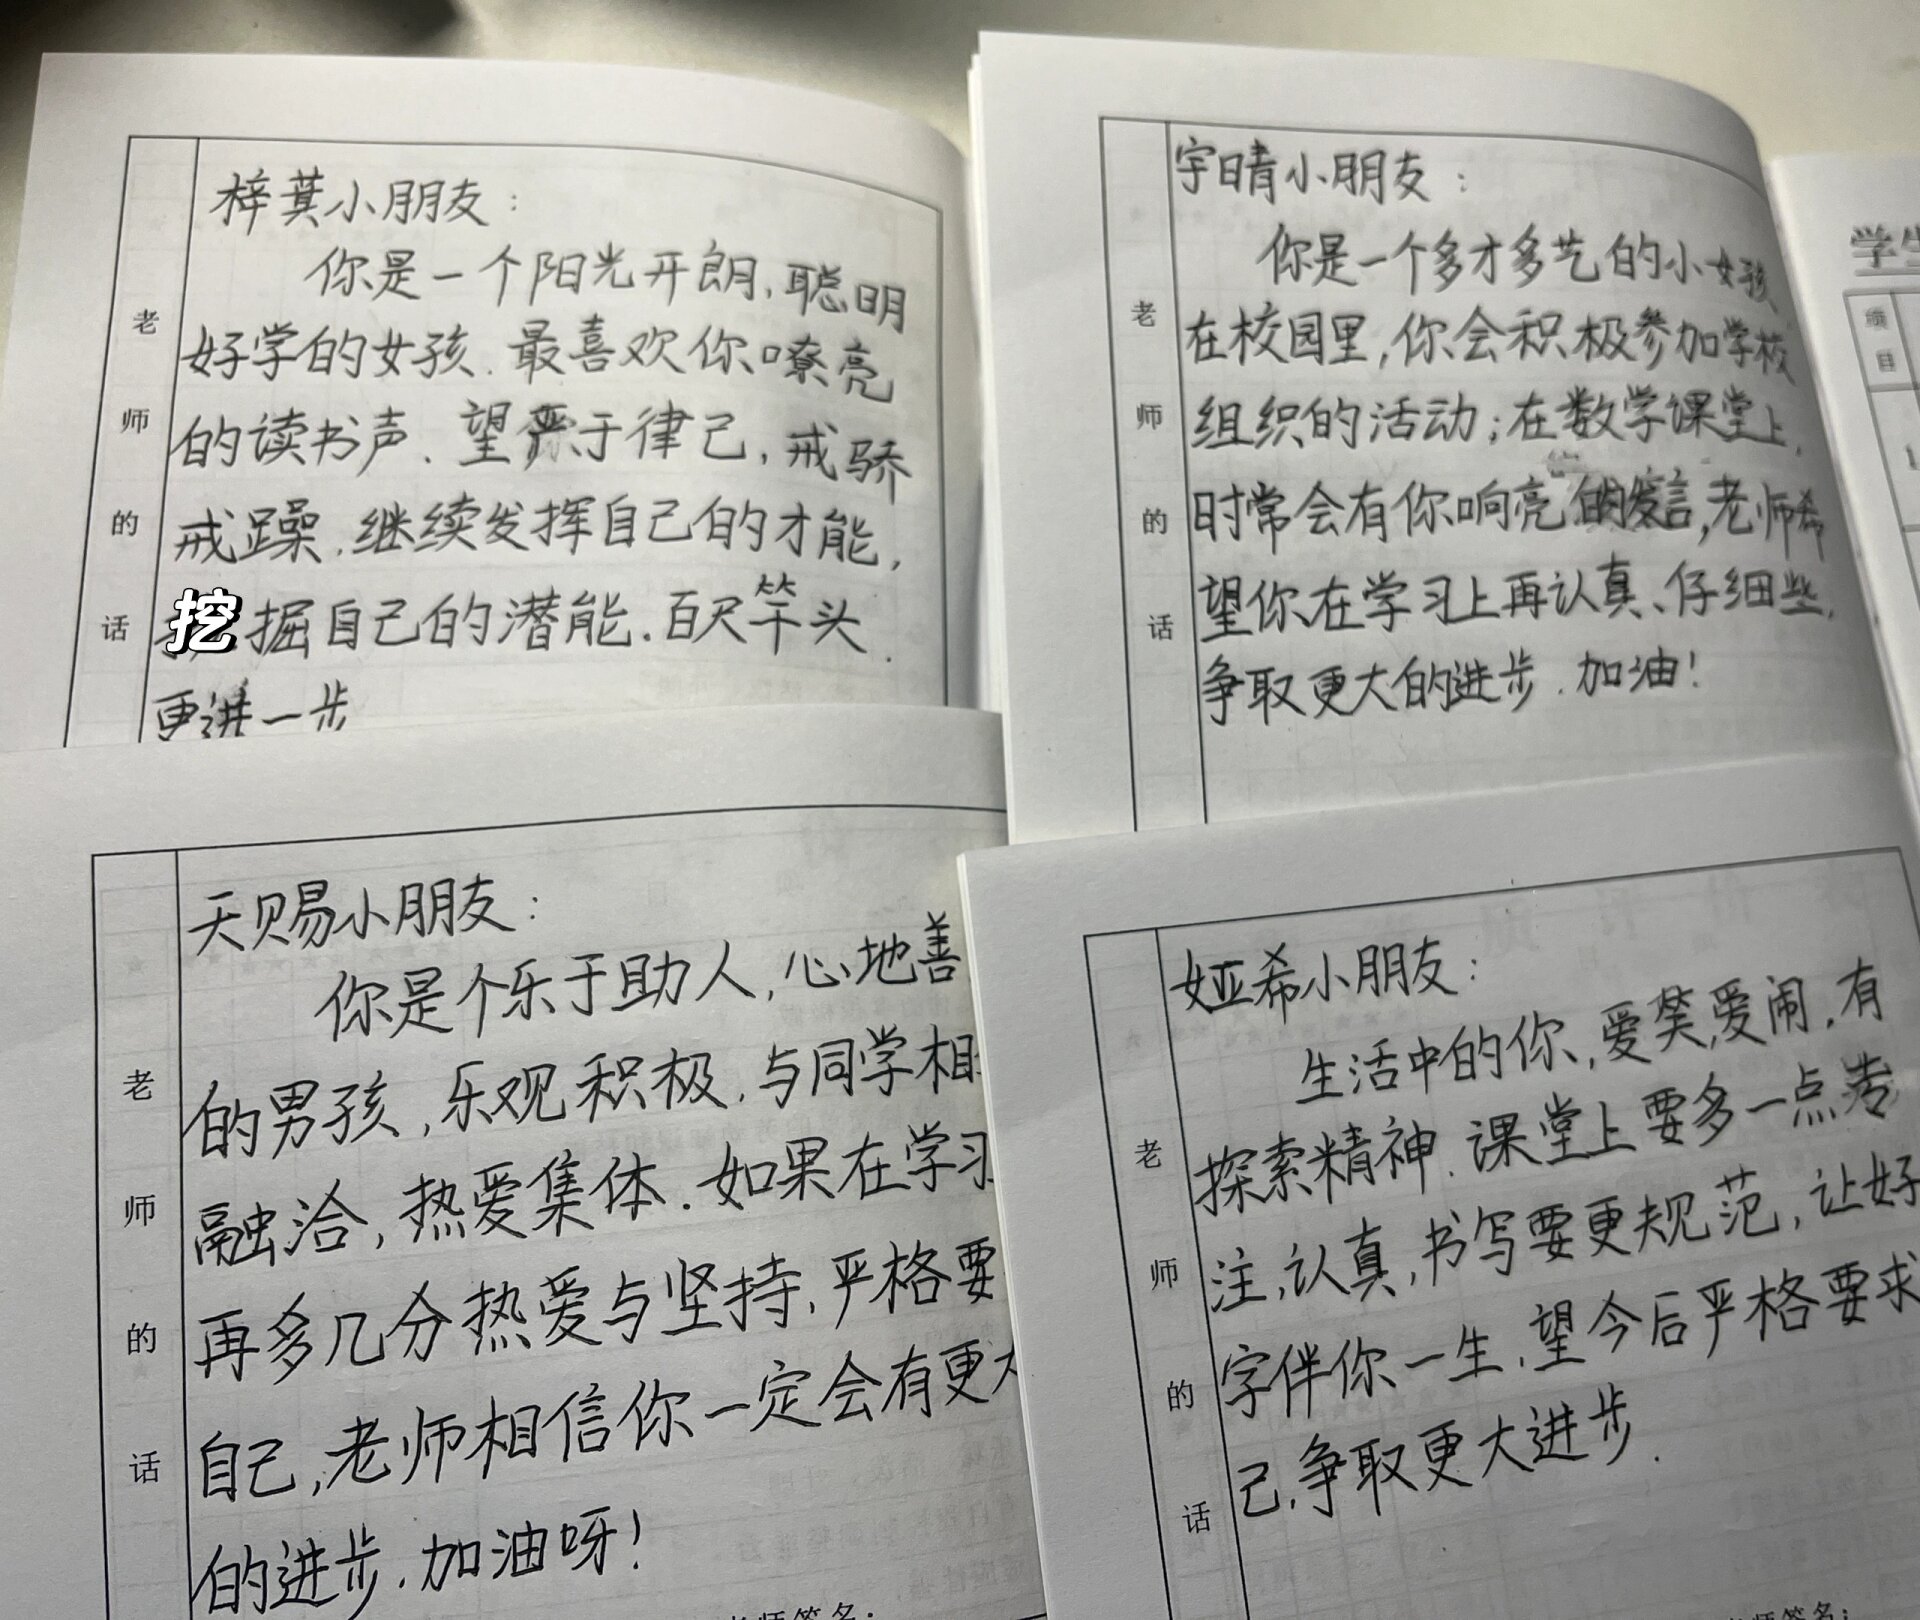 老师的话
梓萁小朋友：
你是一个阳光开朗，聪明
好学的女孩．最喜欢你嘹亮
的读书声．望严于律己，戒骄
戒躁．继续发挥自己的才能，
挖掘自己的潜能．百尺竿头．
更进一步
老师的话
宇晴小朋友：
你是一个多才多艺的小女孩
在校园里，你会积极参加学校
组织的活动；在数学课堂上，
时常会有你响亮的发言，老师希
望你在学习上再认真、仔细些，
争取更大的进步．加油！
学生
绩
目
1
老师的话
天赐小朋友：
你是个乐于助人，心地善
的男孩，乐观积极．与同学相
融洽，热爱集体．如果在学习
再多几分热爱与坚持，严格要
自己，老师相信你一定会有更大
的进步．加油呀！
老师签名：
老师的话
娅希小朋友：
生活中的你，爱笑，爱闹，有
探索精神．课堂上要多一点专
注，认真，书写要更规范，让好
字伴你一生，望今后严格要求
己，争取更大进步．
老师签名：